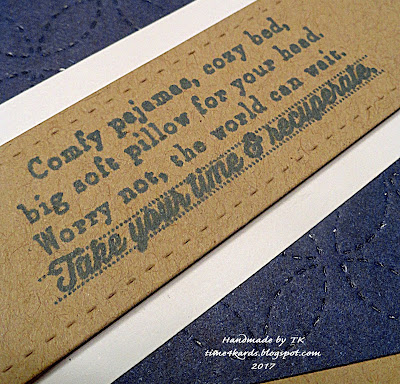 Comfy pajamas, cozy bed,
big soft pillow for your head.
Worry not, the world can wait.
Take your time & recuperate.
Handmade by TK
time4kards.blogspot.com
2017